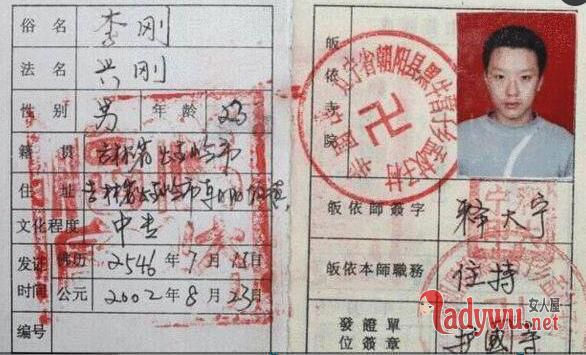 俗名 李刚
法名 兴刚
性别 男 年龄 23
籍贯 吉林省 市
住址 吉林省 市
文化程度 中专
发证时间 佛历 2546年7月 日
公元 2002年8月23日
编号
皈依寺院
辽宁省朝阳县黑牛营子乡 村
護國寺
卍
皈依師簽字 释大宁
皈依本師職務 住持
發證單位簽章 护國寺
女人屋
ladywu.net